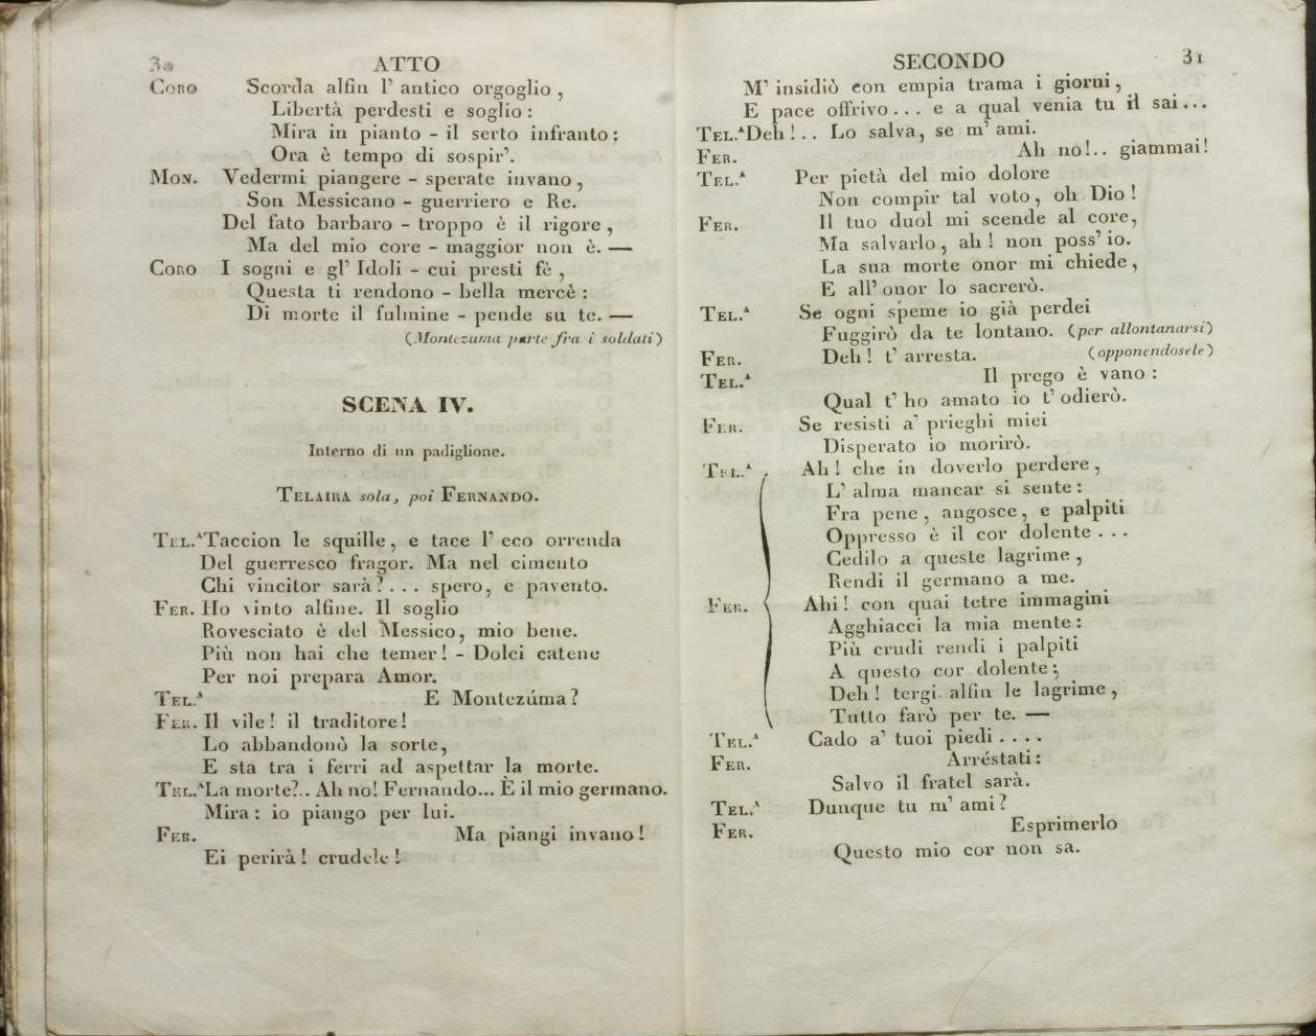 30 ATTO
CORO Scorda alfin l' antico orgoglio,
Libertà perdesti e soglio:
Mira in pianto - il serto infranto;
Ora è tempo di sospir'.
MON. Vedermi piangere - sperate invano,
Son Messicano - guerriero e Re.
Del fato barbaro - troppo è il rigore,
Ma del mio core - maggior non è. —
CORO I sogni e gl' Idoli - cui presti fè,
Questa ti rendono - bella mercè:
Di morte il fulmine - pende su te. —
(Montezuma parte fra i soldati)
SCENA IV.
Interno di un padiglione.
TELAIRA sola, poi FERNANDO.
TEL.ᴬ Taccion le squille, e tace l' eco orrenda
Del guerresco fragor. Ma nel cimento
Chi vincitor sarà?... spero, e pavento.
FER. Ho vinto alfine. Il soglio
Rovesciato è del Messico, mio bene.
Più non hai che temer! - Dolci catene
Per noi prepara Amor.
TEL.ᴬ E Montezúma?
FER. Il vile! il traditore!
Lo abbandonò la sorte,
E sta tra i ferri ad aspettar la morte.
TEL.ᴬ La morte?.. Ah no! Fernando... È il mio germano.
Mira: io piango per lui.
FER. Ma piangi invano!
Ei perirà! crudele!
SECONDO 31
M' insidiò con empia trama i giorni,
E pace offrivo... e a qual venia tu il sai...
TEL.ᴬ Deh!.. Lo salva, se m' ami.
FER. Ah no!.. giammai!
TEL.ᴬ Per pietà del mio dolore
Non compir tal voto, oh Dio!
FER. Il tuo duol mi scende al core,
Ma salvarlo, ah! non poss' io.
La sua morte onor mi chiede,
E all' onor lo sacrerò.
TEL.ᴬ Se ogni speme io già perdei
Fuggirò da te lontano. (per allontanarsi)
FER. Deh! t' arresta. (opponendosele)
TEL.ᴬ Il prego è vano:
Qual t' ho amato io t' odierò.
FER. Se resisti a' prieghi miei
Disperato io morirò.
TEL.ᴬ Ah! che in doverlo perdere,
L' alma mancar si sente:
Fra pene, angosce, e palpiti
Oppresso è il cor dolente...
Cedilo a queste lagrime,
Rendi il germano a me.
FER. Ahi! con quai tetre immagini
Agghiacci la mia mente:
Più crudi rendi i palpiti
A questo cor dolente;
Deh! tergi alfin le lagrime,
Tutto farò per te. —
TEL.ᴬ Cado a' tuoi piedi....
FER. Arréstati:
Salvo il fratel sarà.
TEL.ᴬ Dunque tu m' ami?
FER. Esprimerlo
Questo mio cor non sa.